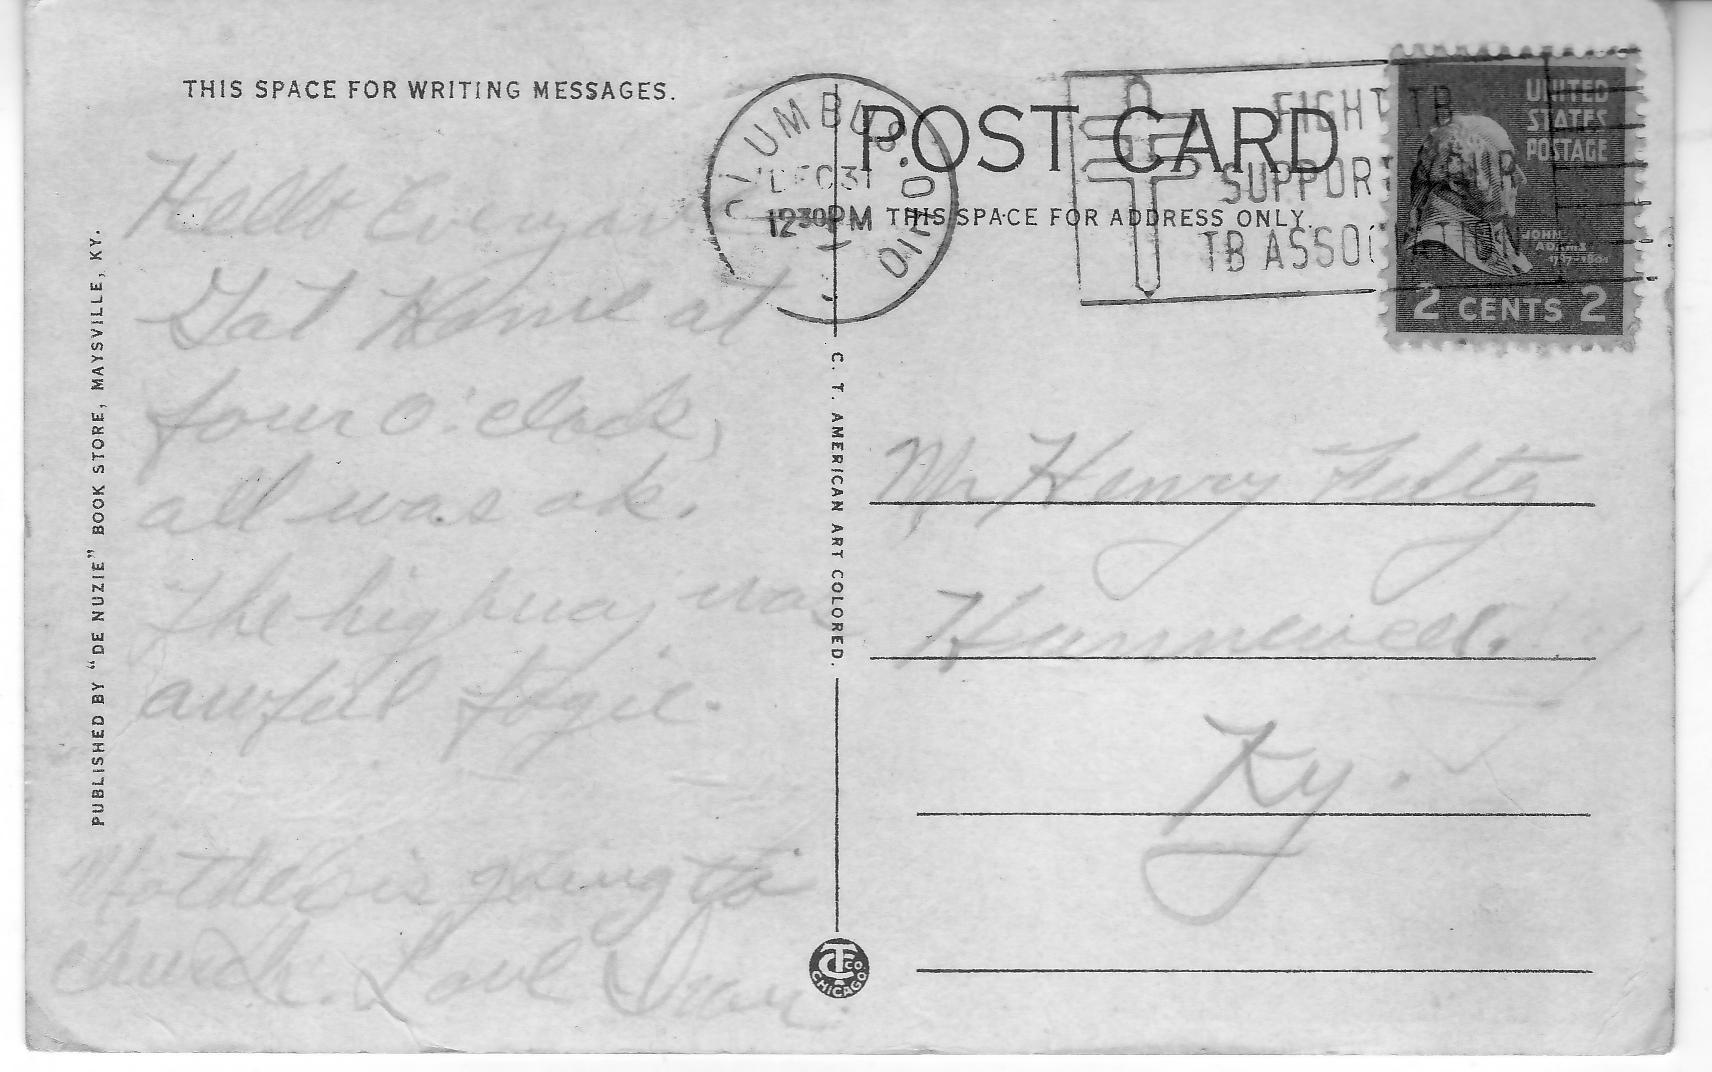 THIS SPACE FOR WRITING MESSAGES.
POST CARD
THIS SPACE FOR ADDRESS ONLY.
COLUMBUS, OHIO
DEC 31
12 30 PM
FIGHT TB
SUPPORT
TB ASSOCIATION
UNITED
STATES
POSTAGE
JOHN
ADAMS
1797-1801
2 CENTS 2
Hello Everyone
Got Home at
four O'clock,
all was ok.
The highway was
awful fogie.
Mother is going to
church. Love
Mr Henry
Hunnewell.
Ky.
PUBLISHED BY "DE NUZIE" BOOK STORE, MAYSVILLE, KY.
C. T. AMERICAN ART COLORED.
CT CO. CHICAGO